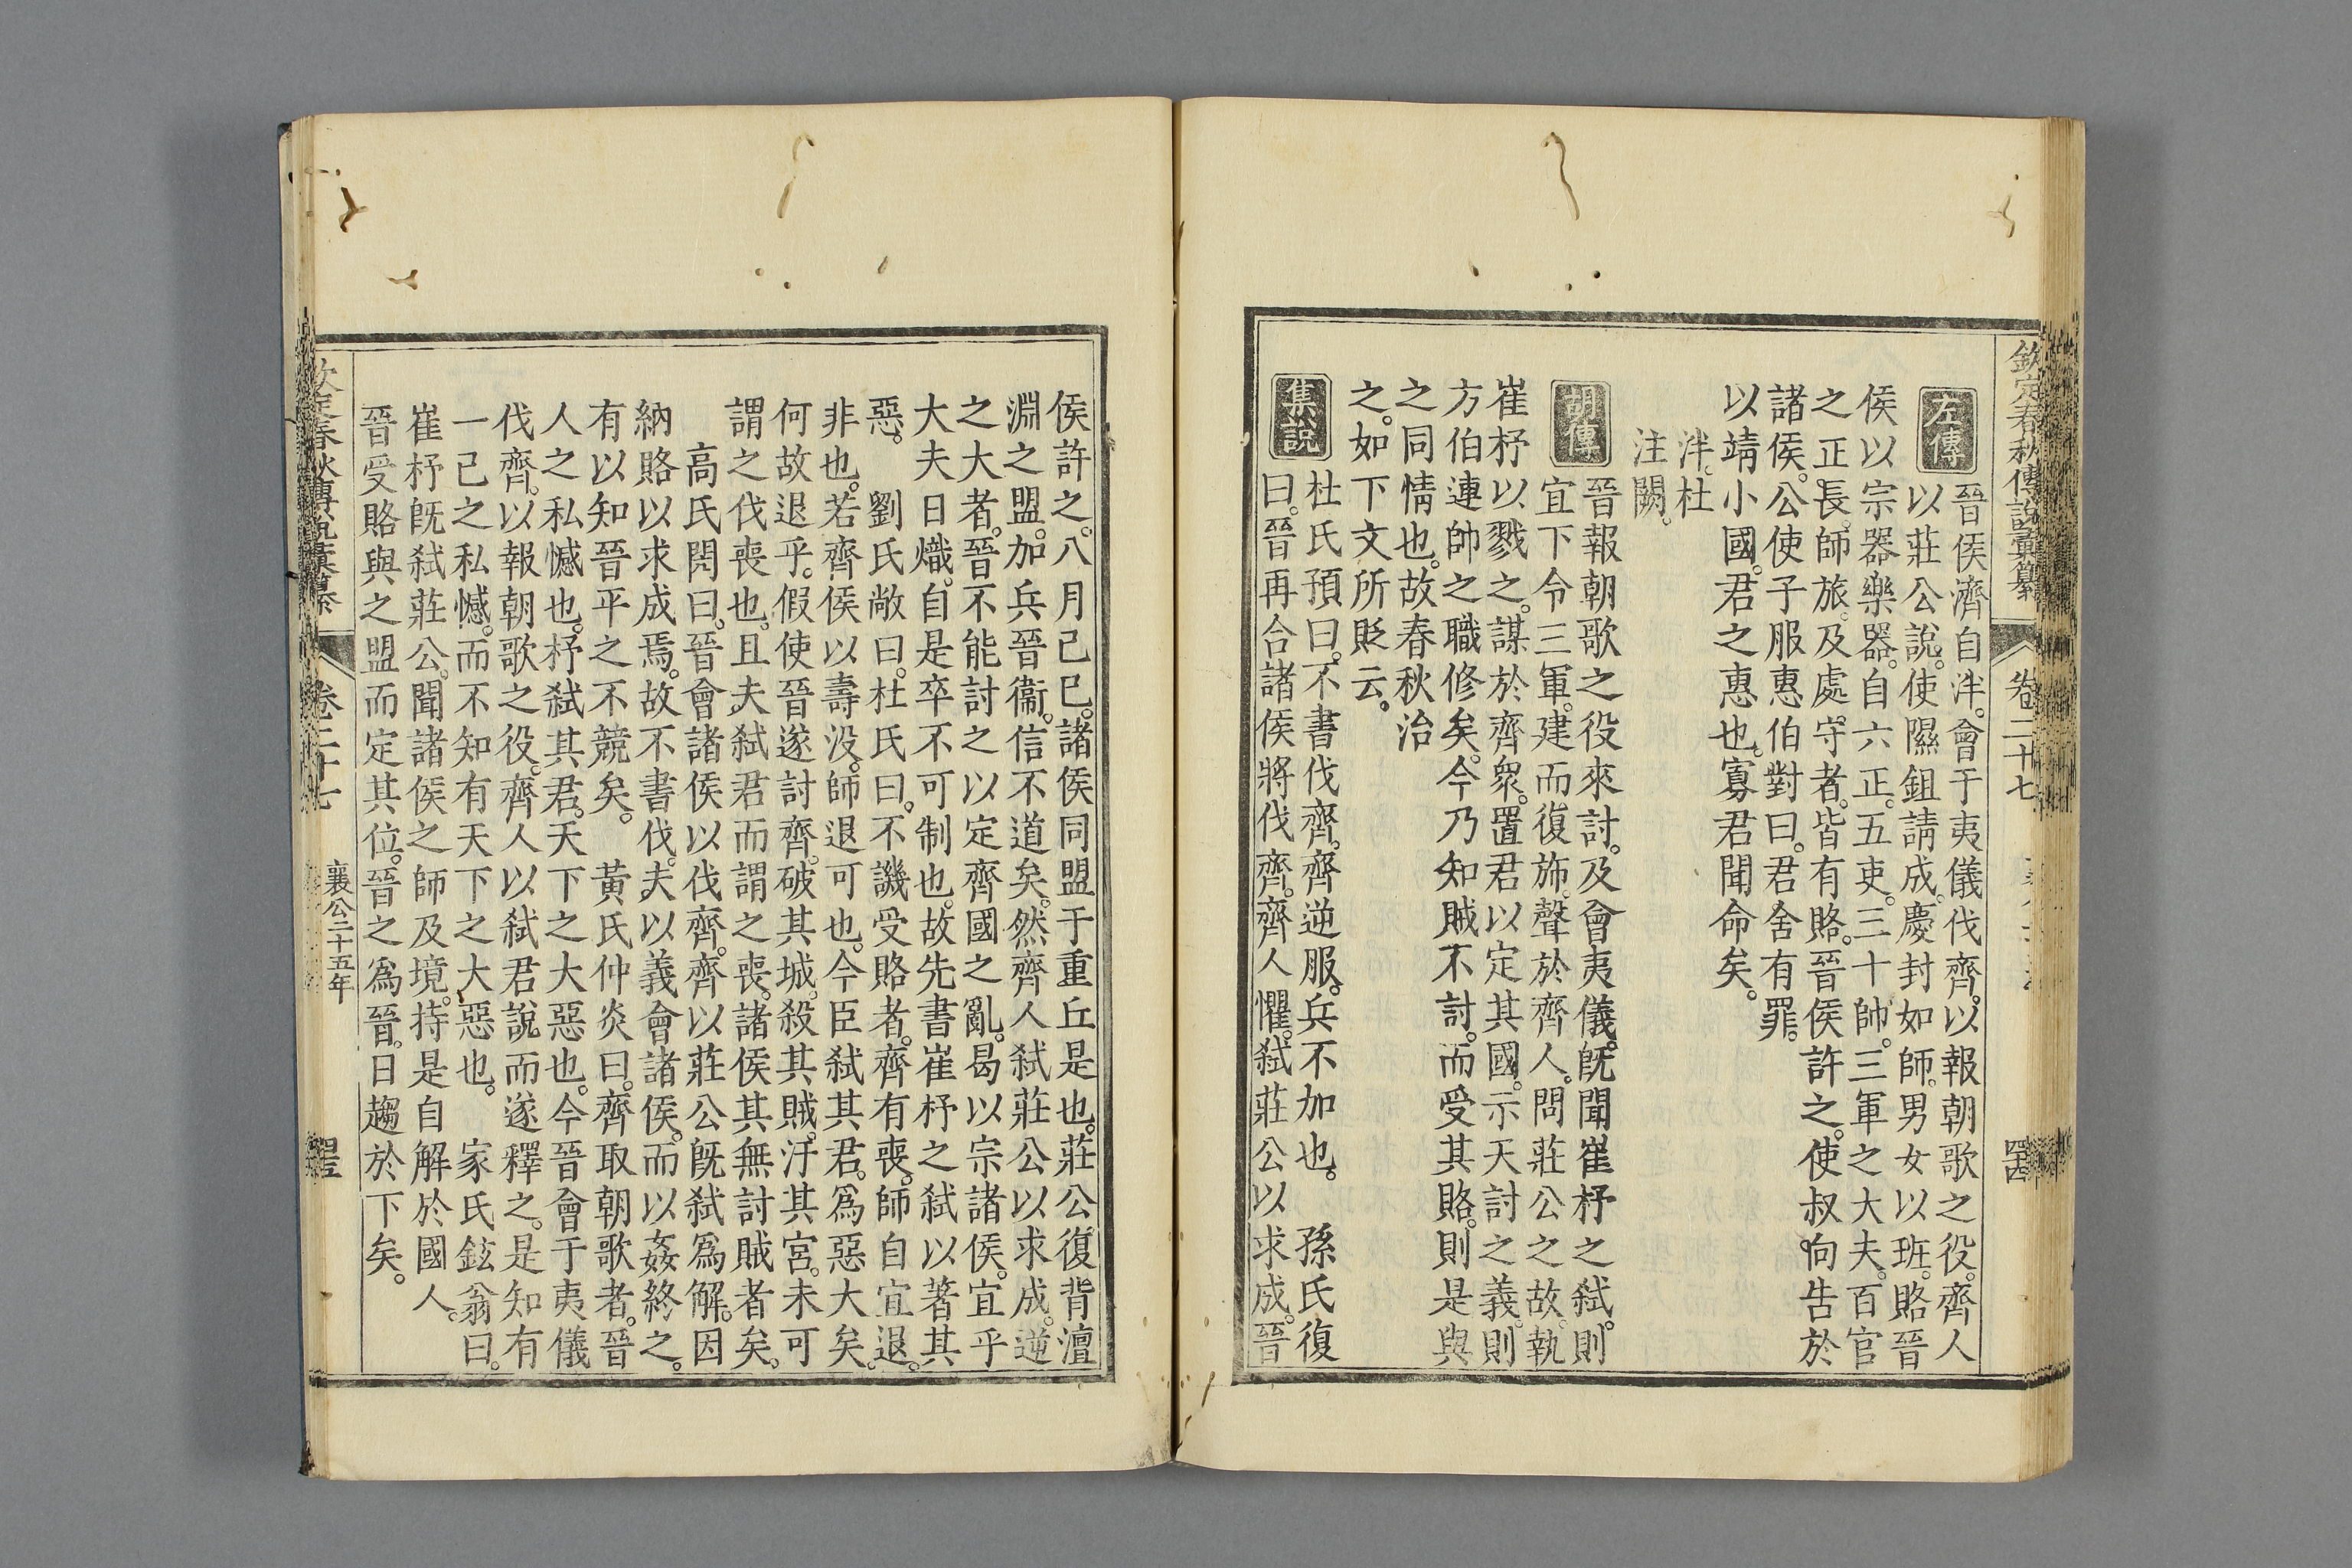 欽定春秋傳說彙纂 卷二十七
左傳
晉侯濟自泮。會于夷儀伐齊。以報朝歌之役。齊人
以莊公說。使隰鉏請成。慶封如師。男女以班。賂晉
侯以宗器樂器。自六正。五吏。三十帥。三軍之大夫。百官
之正。長。師旅。及處守者。皆有賂。晉侯許之。使叔向告於
諸侯。公使子服惠伯對曰。君舍有罪。
以靖小國。君之惠也。寡君聞命矣。
泮。杜
注闕。
胡傳
晉報朝歌之役來討。及會夷儀。旣聞崔杼之弑。則
宜下令三軍。建而復斾。聲於齊人。問莊公之故。執
崔杼以戮之。謀於齊衆。置君以定其國。示天討之義。則
方伯連帥之職修矣。今乃知賊不討。而受其賂。則是與
之同情也。故春秋治
之。如下文所貶云。
集說
杜氏預曰。不書伐齊。齊逆服。兵不加也。 孫氏復
曰。晉再合諸侯將伐齊。齊人懼。弑莊公以求成。晉
侯許之。八月己巳。諸侯同盟于重丘是也。莊公復背澶
淵之盟。加兵晉衞。信不道矣。然齊人弑莊公以求成。逆
之大者。晉不能討之以定齊國之亂。曷以宗諸侯。宜乎
大夫日熾。自是卒不可制也。故先書崔杼之弑以著其
惡。 劉氏敞曰。杜氏曰。不譏受賂者。齊有喪。師自宜退。
非也。若齊侯以壽沒。師退可也。今臣弑其君。爲惡大矣。
何故退乎。假使晉遂討齊。破其城。殺其賊。汙其宮。未可
謂之伐喪也。且夫弑君而謂之喪。諸侯其無討賊者矣。
高氏閌曰。晉會諸侯以伐齊。齊以莊公旣弑爲解。因
納賂以求成焉。故不書伐。夫以義會諸侯。而以姦終之。
有以知晉平之不競矣。 黃氏仲炎曰。齊取朝歌者。晉
人之私憾也。杼弑其君。天下之大惡也。今晉會于夷儀
伐齊。以報朝歌之役。齊人以弑君說而遂釋之。是知有
一己之私憾。而不知有天下之大惡也。 家氏鉉翁曰。
崔杼旣弑莊公。聞諸侯之師及境。持是自解於國人。
晉受賂與之盟而定其位。晉之爲晉。日趨於下矣。
欽定春秋傳說彙纂 卷二十七 襄公二十五年